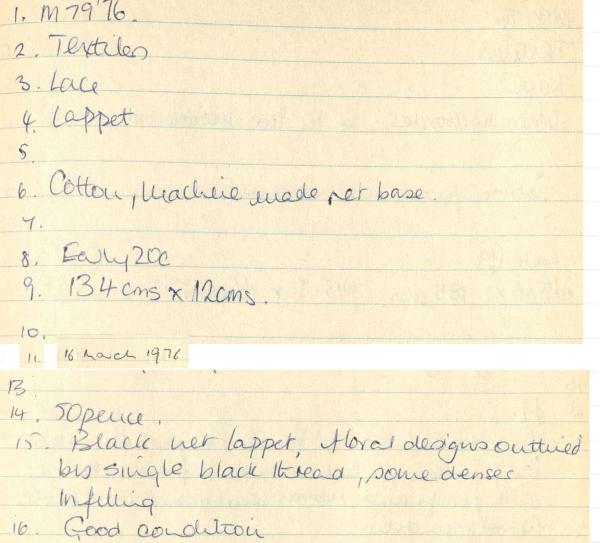 1. M79'76.
2. Textiles
3. Lace
4. Lappet
5.
6. Cotton, machine made net base.
7.
8. Early 20c
9. 134cms x 12cms.
10.
11. 16 March 1976
13
14. 50pence.
15. Black net lappet, floral designs outlined
by single black thread, some denser
infilling
16. Good condition